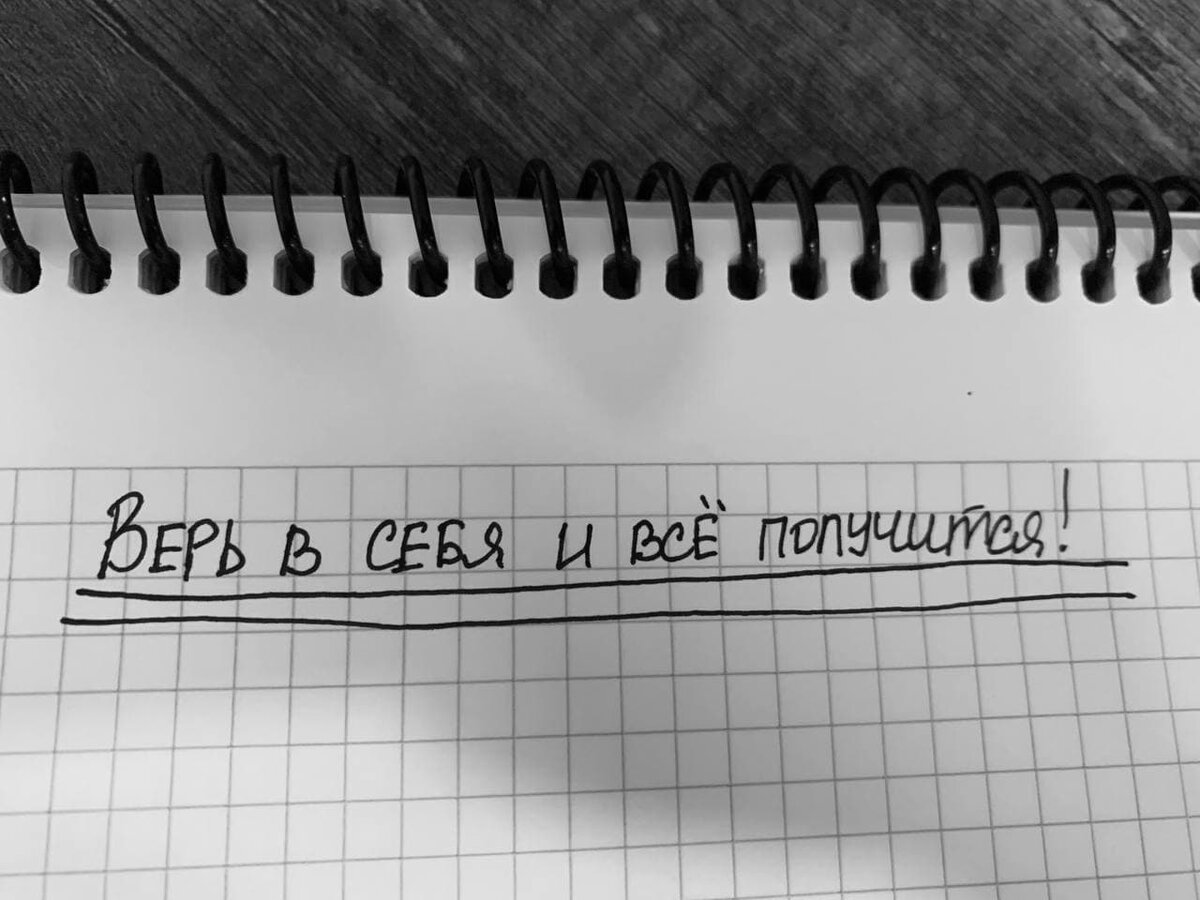 Верь в себя и всё получится!